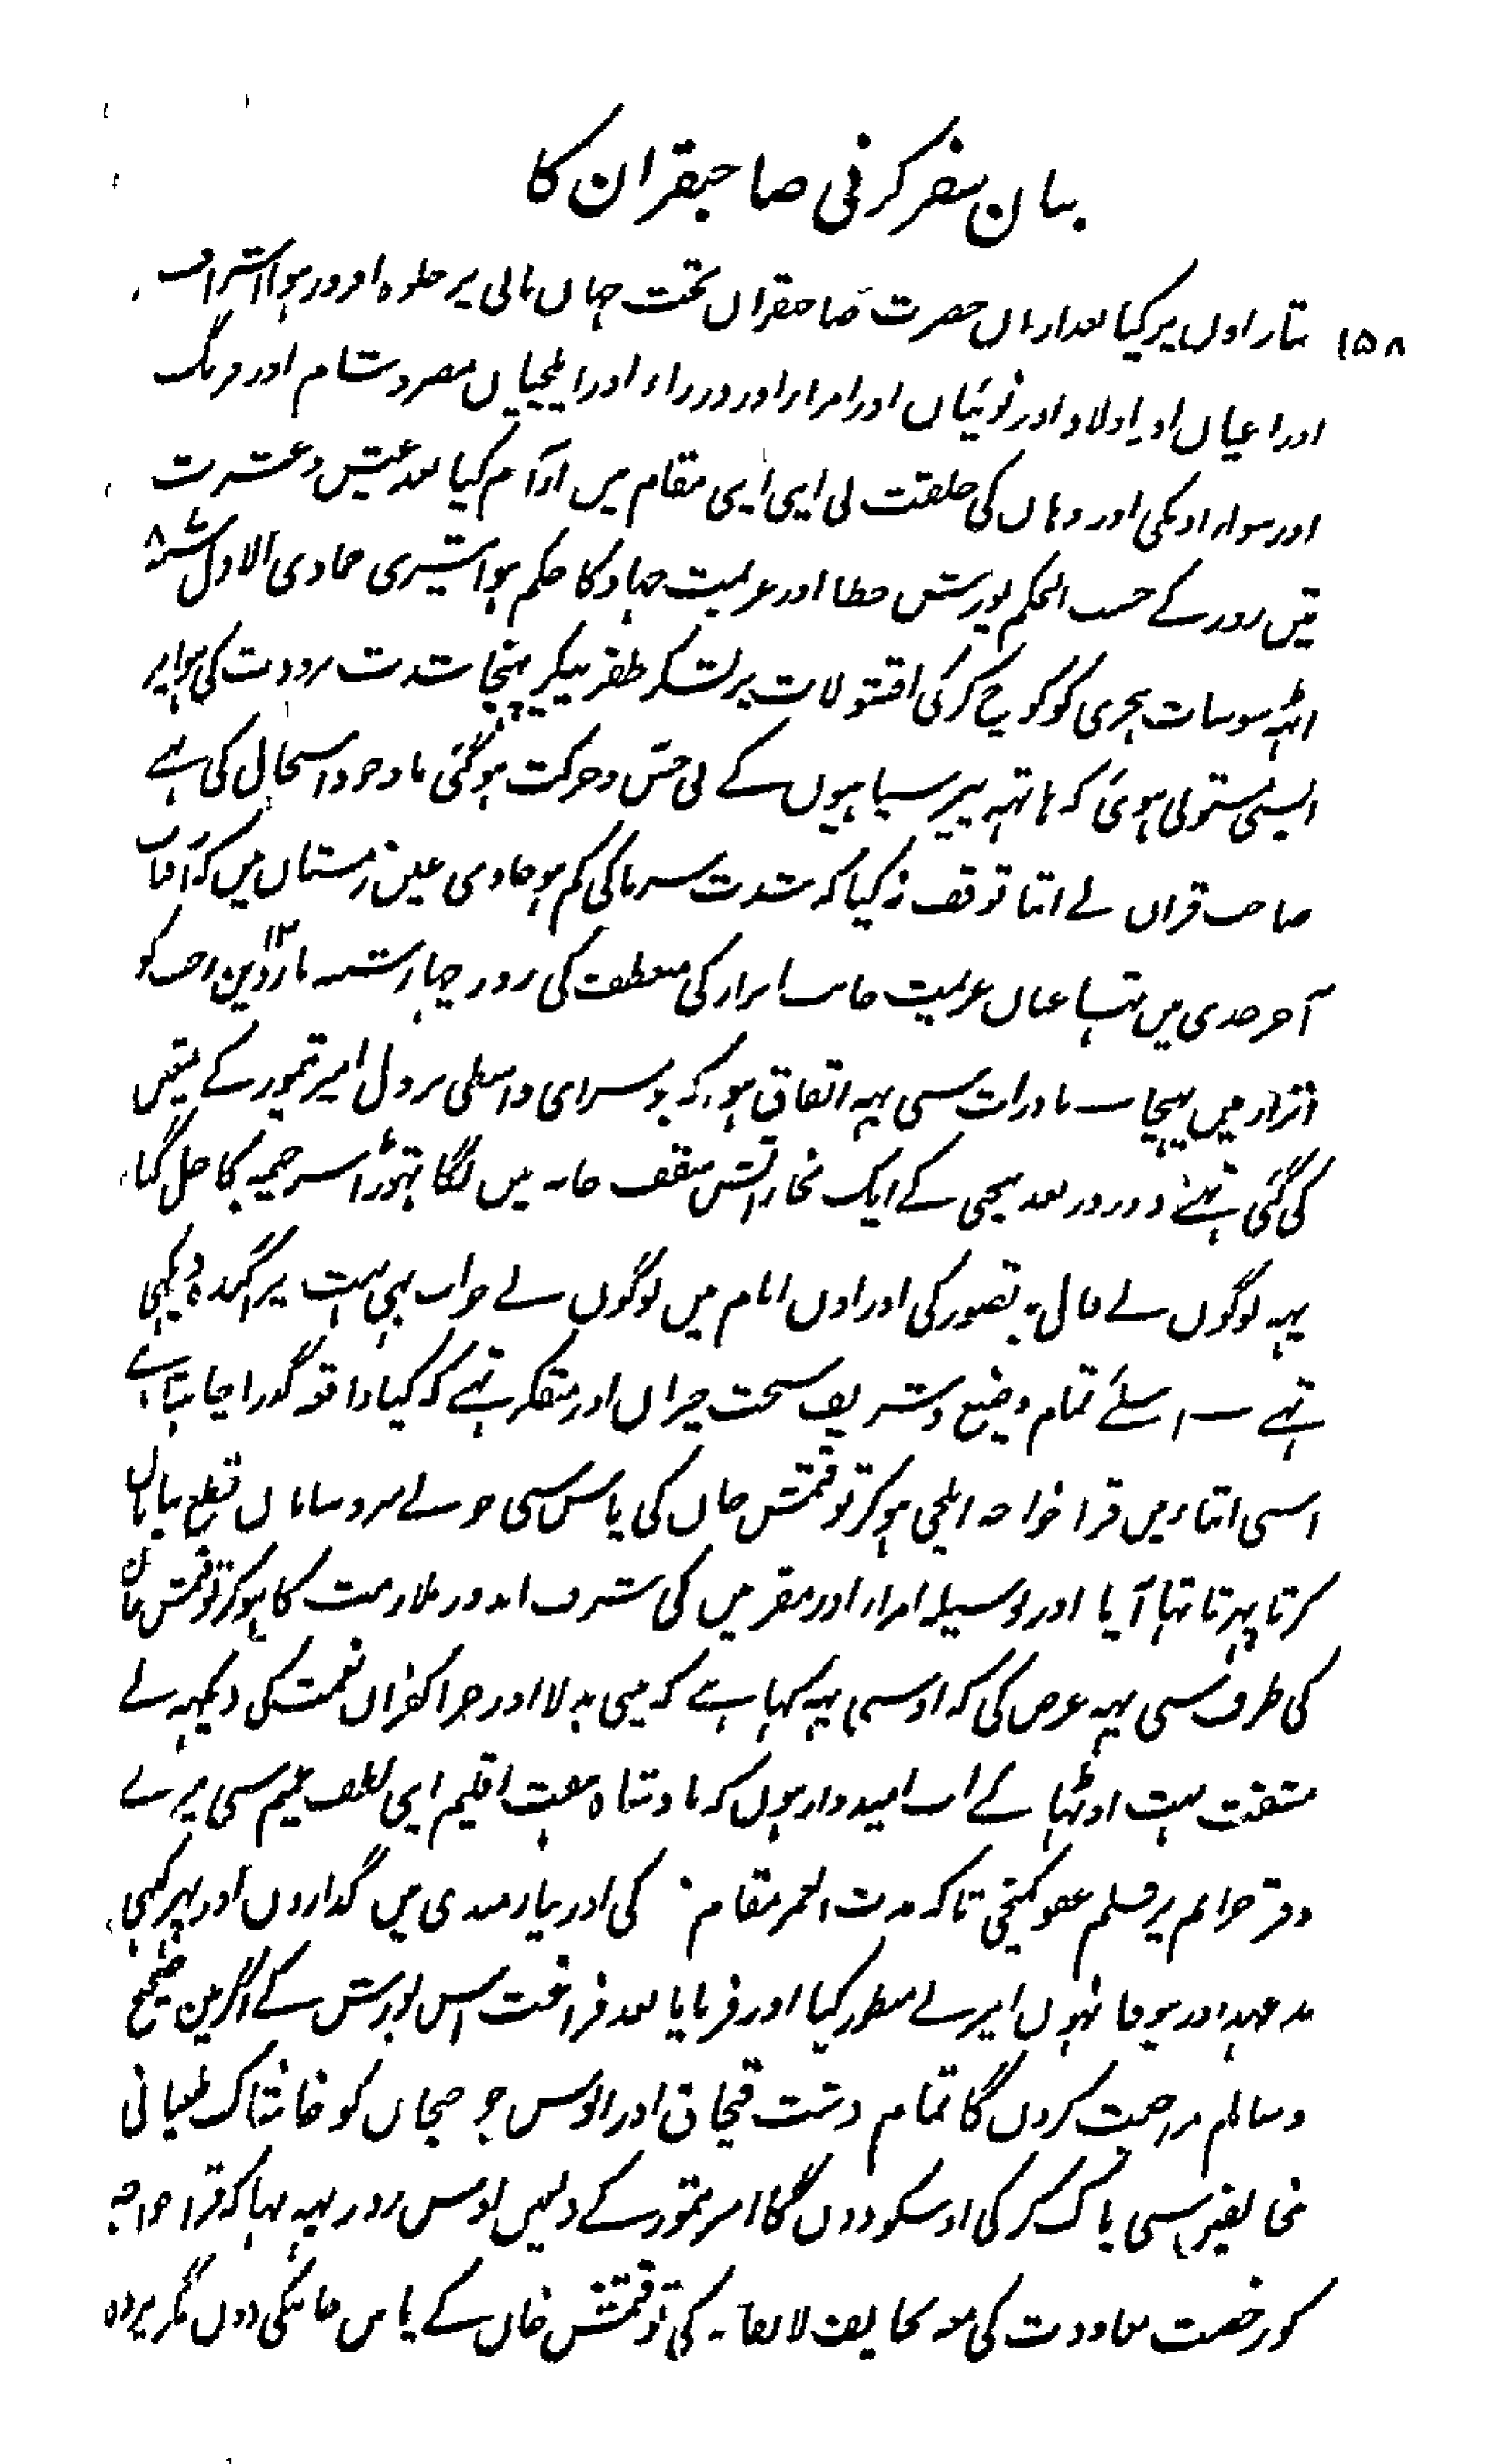 بیان سفر کرنی صاحبقران کا
۱۵۸ نثار اول پر کیا بعد ازاں حضرت صاحبقراں تخت جہاں بانی پر جلوہ افروز ہوا اشراف
اور اعیاں اور اولاد اور نوئیاں اور امراء اور وزراء اور ایلچیاں مصر و شام اور فرنگ
اور سوار اونکی اور وہاں کی خلقت نی اپنی اپنی مقام میں آرام کیا بعد عیش و عشرت
تین روز کے حسب الحکم یورش خطا اور عزیمت جہاد کا حکم ہوا تیئسری جمادی الاول سنہ ۸
اٹہہ سو سات ہجری کو کوچ کر کی اقسولات پر لشکر ظفر پیکر پہنچا شدت برودت کی ہوا پر
ایسی مستولی ہوئی کہ ہاتہہ پیر سپاہیوں کے بی حس و حرکت ہوگئی باوجود اسحال کی ہے
صاحب قراں نے اتنا توقف نہ کیا کہ شدت سرما کی کم ہو جاوی عین زمستاں میں کہ آفتاب
آخر جدی میں تہا عناں عزیمت جانب اترار کی منعطف کی روز چہارشنبہ بارویں ۱۲ رجب کو
اترار میں پہنچا ـ نادرات سی یہہ اتفاق ہوا کہ جو سرای واسطی نزول امیر تیمور کے متعین
کی گئی تہی دو روز بعد پہنچی کے ایک بخار آتش سقف خانہ میں لگا تہوڑا سر خیمہ کا جل گیا
یہہ لوگوں نے فال بد تصور کی اور اون ایام میں لوگوں نے خواب بہی بہت پراگندہ دیکہی
تہے ـ اسلئے تمام وضیع و شریف سخت حیراں اور متفکر تہے کہ کیا واقعہ گذرا چاہتا ہے
اسی اثناء میں قرا خواجہ ایلچی ہو کر توقتمش خاں کی پاس سی جو بے سر و ساماں قطع بیاباں
کرتا پہرتا تہا آیا اور بوسیلہ امراء اور مقربین کی شرف اندوز ملازمت کا ہو کر توقتمش خاں
کی طرف سی یہہ عرض کی کہ اوسی یہہ کہا ہے کہ مینی بدلا اور جزا کفراں نعمت کی دیکہہ لے
مشقت بہت اوٹہا کے اب امیدوار ہوں کہ بادشاہ ہفت اقلیم اپنی لطف عمیم سی میرے
دفتر جرایم پر قلم عفو کہینچی تاکہ مدت العمر مقام کی اور نیازمندی میں گذاروں اور پہر کبہی
بد عہد اور بیوفا نہوں امیر نے منظور کیا اور فرمایا بعد فراغت اس یورش کے اگر میں صحیح
و سالم مراجعت کروں گا تمام دشت قبچاق اور الوس جوجیخاں کو خاشاک طغیانی
مخالفین سی پاک کر کی اوسکو دوں گا امیر تیمور کے دلمیں اوس روز یہہ تہا کہ قرا خواجہ
کو رخصت معاودت کی مع تحایف لایقہ کی توقتمش خاں کے پاس جانیکی دوں مگر پردہ